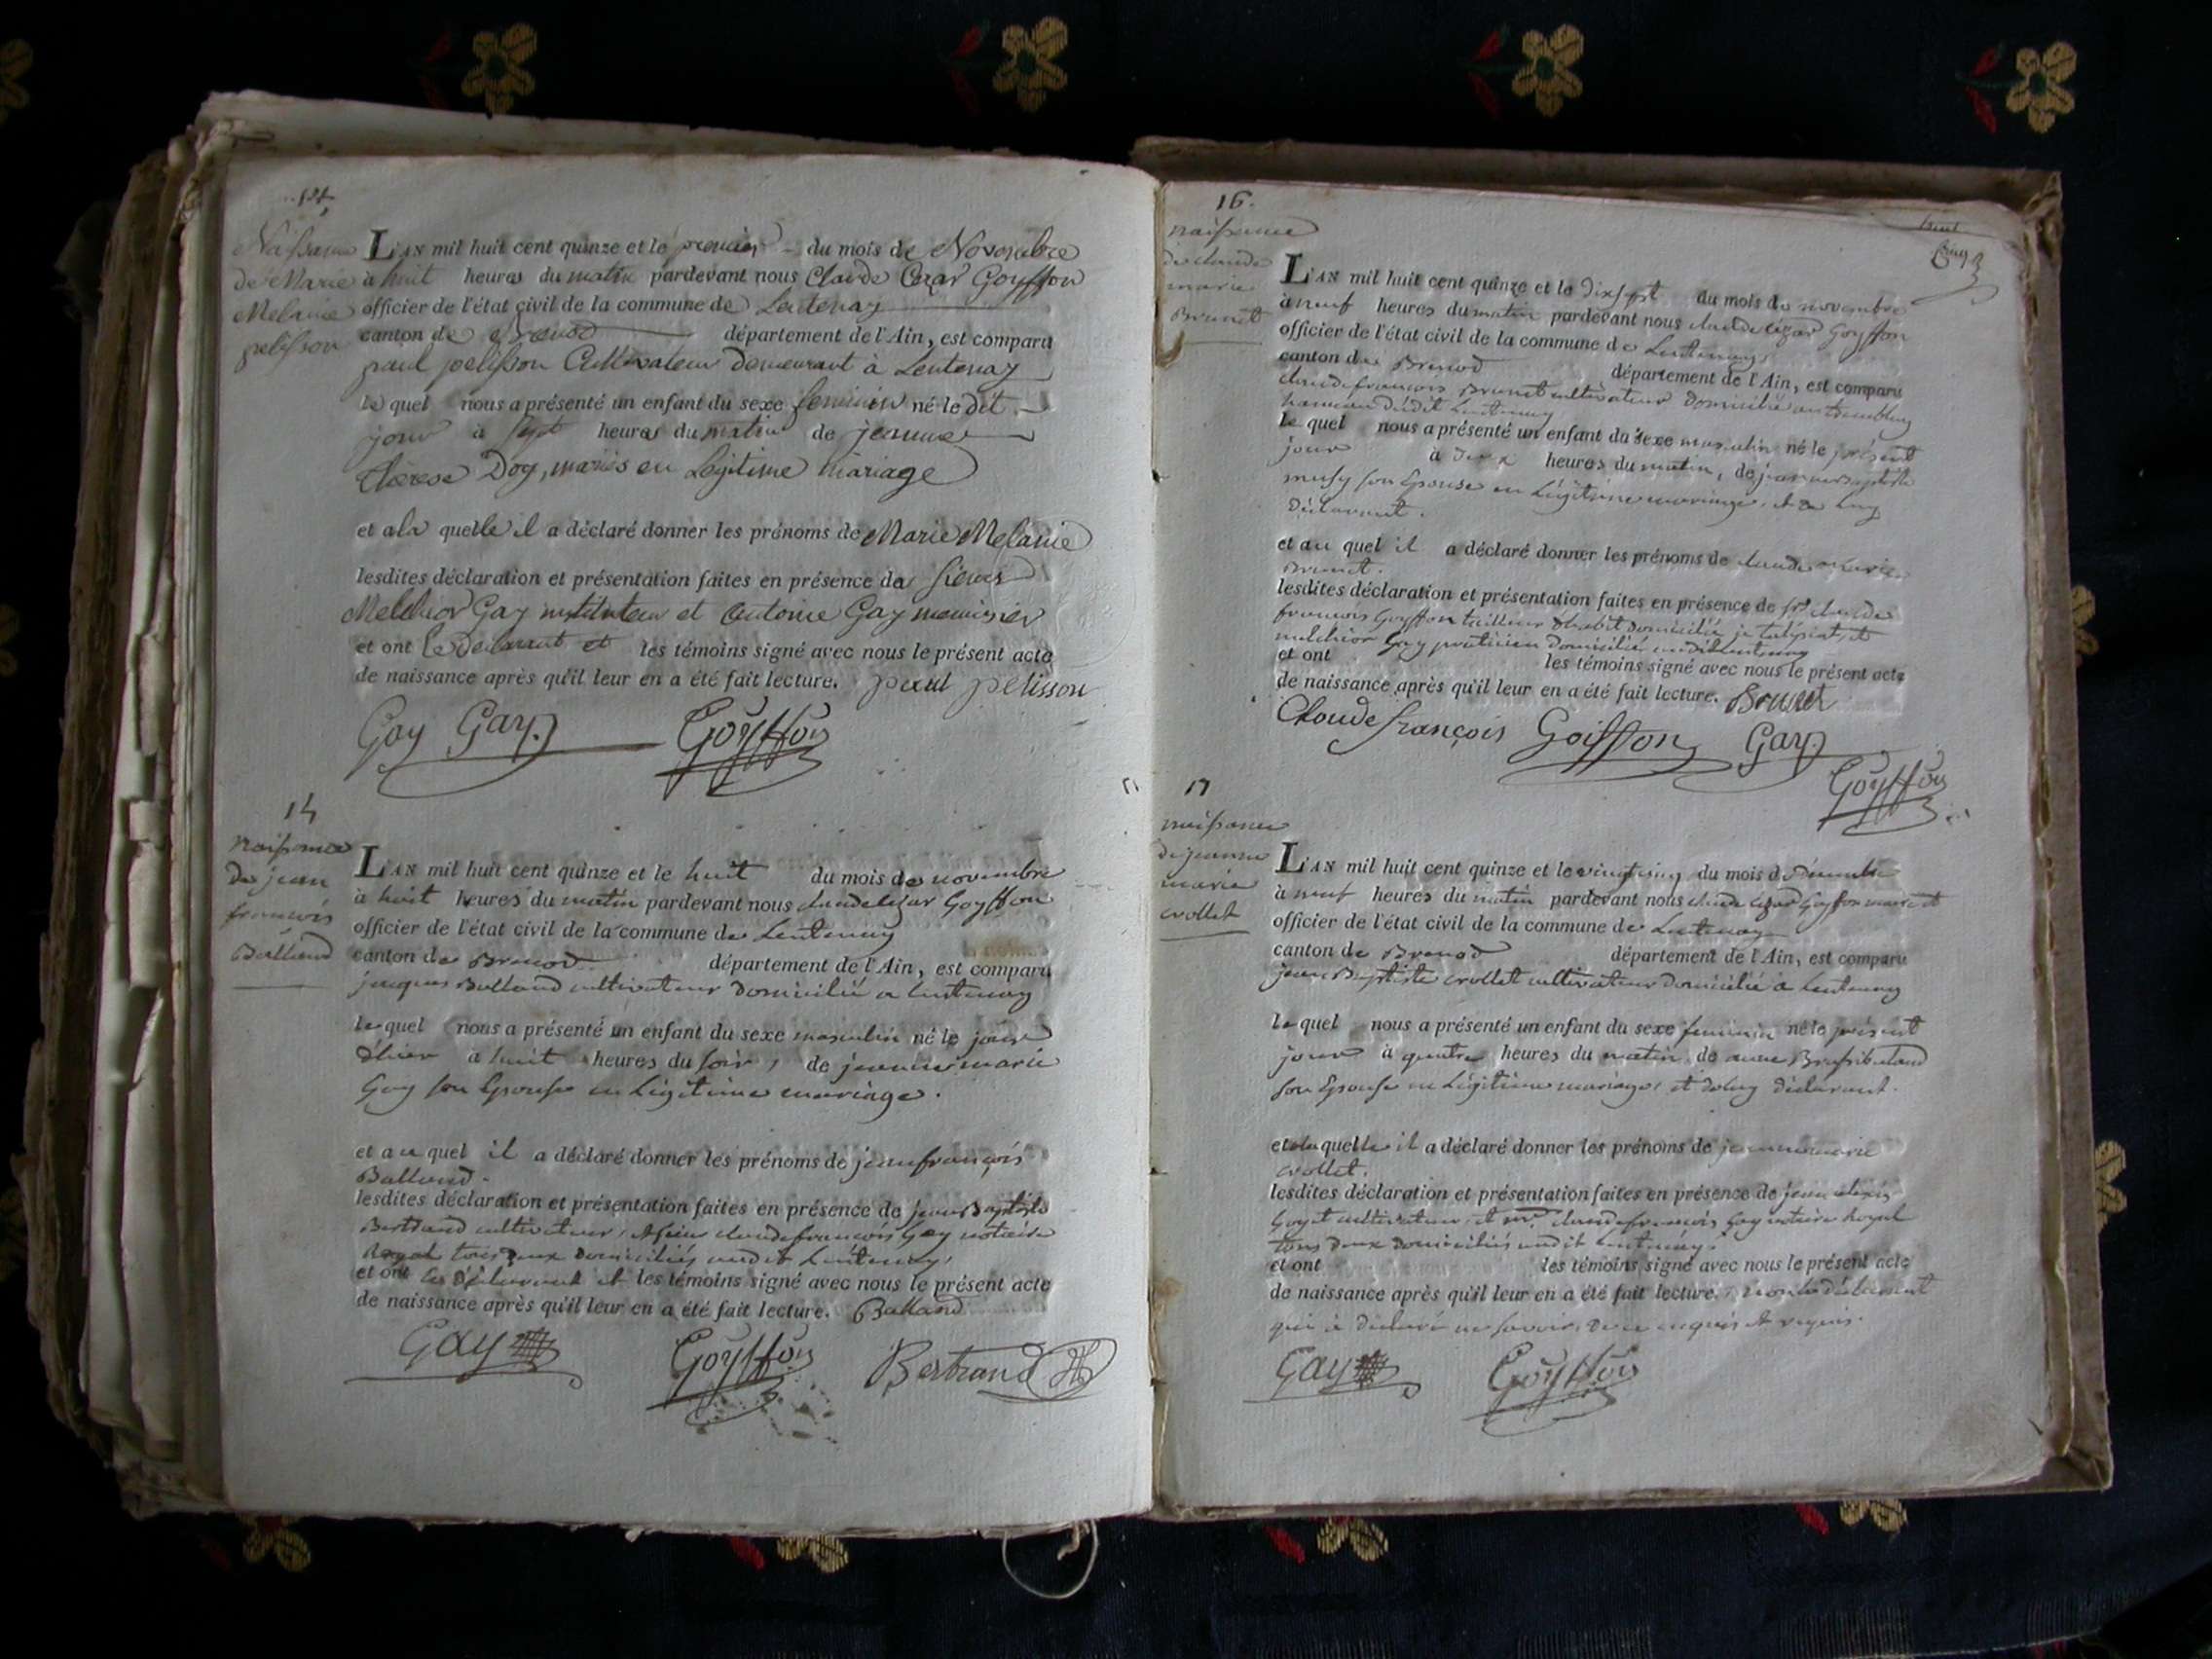 Naissance
de Marie
Melanie
pelisson
L'AN mil huit cent quinze et le premier du mois de Novembre
à huit heures du matin pardevant nous Claude Cezar Goyffon
officier de l'état civil de la commune de Lentenay
canton de Brenod département de l'Ain, est comparu
paul pelisson Cultivateur demeurant à Lentenay
le quel nous a présenté un enfant du sexe feminin né le dit
jour à sept heures du matin de jeanne
therese Dog, mariés en Légitime mariage
et a la quelle il a déclaré donner les prénoms de Marie Melanie
lesdites déclaration et présentation faites en présence de Sieurs
Melchior Gay instituteur et Antoine Gay menuisier
et ont le declarant et les témoins signé avec nous le présent acte
de naissance après qu'il leur en a été fait lecture. paul pelisson
Gay Gay Goyffon
naissance
de jean
françois
Balland
L'AN mil huit cent quinze et le huit du mois de novembre
à huit heures du matin pardevant nous claude cezar Goyffon
officier de l'état civil de la commune de Lentenay
canton de Brenod département de l'Ain, est comparu
jacques Balland cultivateur domicilié a Lentenay
le quel nous a présenté un enfant du sexe masculin né le jour
d'hier a huit heures du soir, de jeanne marie
Gay son Epouse en Légitime mariage.
et au quel il a déclaré donner les prénoms de jean françois
Balland.
lesdites déclaration et présentation faites en présence de jean Baptiste
Bertrand cultivateur, et sieur claude françois Gay notaire
Royal tous deux domiciliés audit Lentenay,
et ont le déclarant et les témoins signé avec nous le présent acte
de naissance après qu'il leur en a été fait lecture. Balland
Gay Goyffon Bertrand
16.
naissance
de claude
marie
Brunet
L'AN mil huit cent quinze et le dixsept du mois de novembre
à neuf heures du matin pardevant nous claude cezar Goyffon
officier de l'état civil de la commune de Lentenay
canton de Brenod département de l'Ain, est comparu
claude françois Brunet cultivateur domicilié au
hameau dudit Lentenay
le quel nous a présenté un enfant du sexe masculin né le présent
jour à deux heures du matin, de jeanne baptiste
musy son Epouse en Légitime mariage, et de luy
déclarant.
et au quel il a déclaré donner les prénoms de claude marie
Brunet.
lesdites déclaration et présentation faites en présence de sr. claude
françois Goyffon tailleur d'habit domicilié a et
melchior Gay praticien domicilié audit Lentenay
et ont les témoins signé avec nous le présent acte
de naissance après qu'il leur en a été fait lecture. Brunet
Claude françois Goiffon Gay
Goyffon
17
naissance
de jeanne
marie
crollet
L'AN mil huit cent quinze et le vingt cinq du mois de Décembre
à neuf heures du matin pardevant nous claude cezar Goyffon maire et
officier de l'état civil de la commune de Lentenay
canton de Brenod département de l'Ain, est comparu
jean Baptiste crollet cultivateur domicilié à Lentenay
le quel nous a présenté un enfant du sexe feminin né le présent
jour à quatre heures du matin de anne
son Epouse en Légitime mariage, et de luy déclarant.
et a la quelle il a déclaré donner les prénoms de jeanne marie
crollet.
lesdites déclaration et présentation faites en présence de jean alexis
Goyet cultivateur, et mr. claude françois Gay notaire Royal
tous deux domiciliés audit Lentenay.
et ont les témoins signé avec nous le présent acte
de naissance après qu'il leur en a été fait lecture, non le déclarant
qui a déclaré ne savoir, de ce enquis et requis.
Gay Goyffon